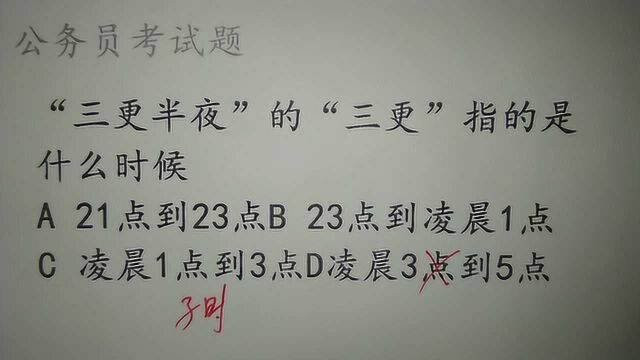 公务员考试题
“三更半夜”的“三更”指的是
什么时候
A 21点到23点B 23点到凌晨1点
C 凌晨1点到3点D凌晨3点到5点
子时